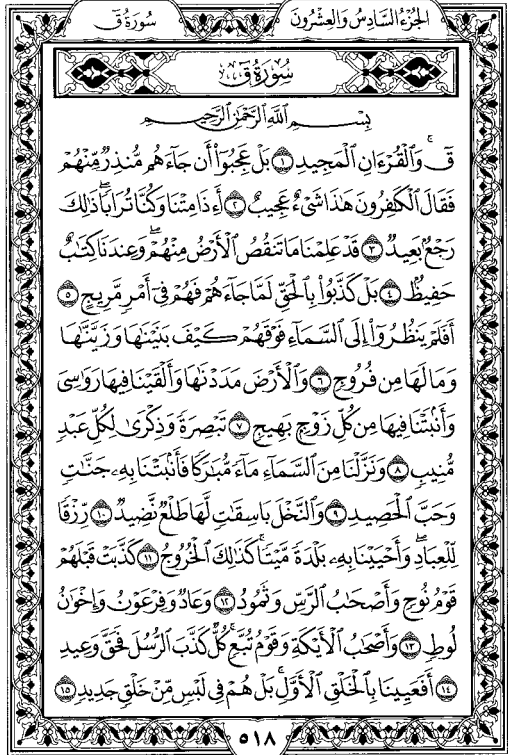 الجزء السادس والعشرون سورة ق
سُورَةُ قٓ
بِسْمِ ٱللَّهِ ٱلرَّحْمَٰنِ ٱلرَّحِيمِ
قٓۚ وَٱلْقُرْءَانِ ٱلْمَجِيدِ ١ بَلْ عَجِبُوٓا۟ أَن جَآءَهُم مُّنذِرٌ مِّنْهُمْ
فَقَالَ ٱلْكَٰفِرُونَ هَٰذَا شَىْءٌ عَجِيبٌ ٢ أَءِذَا مِتْنَا وَكُنَّا تُرَابًاۖ ذَٰلِكَ
رَجْعٌۢ بَعِيدٌ ٣ قَدْ عَلِمْنَا مَا تَنقُصُ ٱلْأَرْضُ مِنْهُمْۖ وَعِندَنَا كِتَٰبٌ
حَفِيظٌۢ ٤ بَلْ كَذَّبُوا۟ بِٱلْحَقِّ لَمَّا جَآءَهُمْ فَهُمْ فِىٓ أَمْرٍ مَّرِيجٍ ٥
أَفَلَمْ يَنظُرُوٓا۟ إِلَى ٱلسَّمَآءِ فَوْقَهُمْ كَيْفَ بَنَيْنَٰهَا وَزَيَّنَّٰهَا
وَمَا لَهَا مِن فُرُوجٍ ٦ وَٱلْأَرْضَ مَدَدْنَٰهَا وَأَلْقَيْنَا فِيهَا رَوَٰسِىَ
وَأَنۢبَتْنَا فِيهَا مِن كُلِّ زَوْجٍۭ بَهِيجٍ ٧ تَبْصِرَةً وَذِكْرَىٰ لِكُلِّ عَبْدٍ
مُّنِيبٍ ٨ وَنَزَّلْنَا مِنَ ٱلسَّمَآءِ مَآءً مُّبَٰرَكًا فَأَنۢبَتْنَا بِهِۦ جَنَّٰتٍ
وَحَبَّ ٱلْحَصِيدِ ٩ وَٱلنَّخْلَ بَاسِقَٰتٍ لَّهَا طَلْعٌ نَّضِيدٌ ١٠ رِّزْقًا
لِّلْعِبَادِۖ وَأَحْيَيْنَا بِهِۦ بَلْدَةً مَّيْتًاۚ كَذَٰلِكَ ٱلْخُرُوجُ ١١ كَذَّبَتْ قَبْلَهُمْ
قَوْمُ نُوحٍ وَأَصْحَٰبُ ٱلرَّسِّ وَثَمُودُ ١٢ وَعَادٌ وَفِرْعَوْنُ وَإِخْوَٰنُ
لُوطٍ ١٣ وَأَصْحَٰبُ ٱلْأَيْكَةِ وَقَوْمُ تُبَّعٍۚ كُلٌّ كَذَّبَ ٱلرُّسُلَ فَحَقَّ وَعِيدِ
١٤ أَفَعَيِينَا بِٱلْخَلْقِ ٱلْأَوَّلِۚ بَلْ هُمْ فِى لَبْسٍ مِّنْ خَلْقٍ جَدِيدٍ ١٥
٥١٨